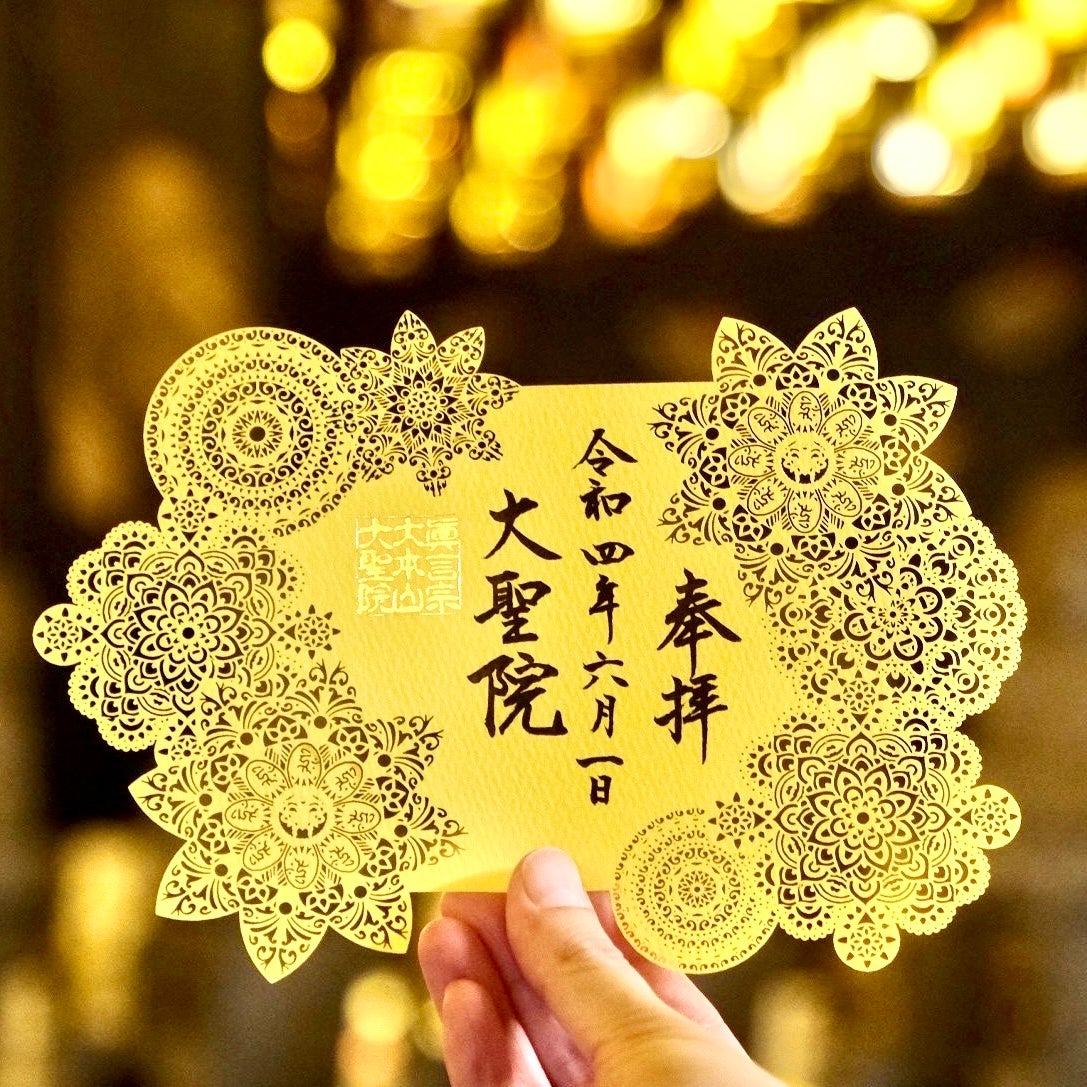 奉拝
令和四年六月一日
大聖院
眞言宗
大本山
大聖院